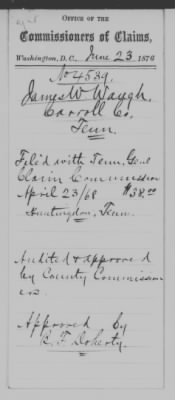 OFFICE OF THE
Commissioners of Claims,
Washington, D.C. June 23 1876
No 4539.
James W Waugh,
Carroll Co,
Tenn.
Filed with Tenn, Genl
Claim Commission
April 23/68 $38.00
Huntingdon, Tenn.
Audited & approved
by County Commission
ers.
Approved by
R. F. Doherty.